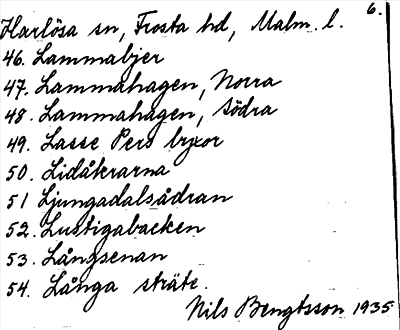 Harlösa sn, Frosta hd, Malm. l. 6.
46. Lammabjer
47. Lammahagen, Norra
48. Lammahagen, Södra
49. Lasse Pers byxor
50. Lidåkrarna
51 Ljungadalsådran
52. Lustigabacken
53. Långsenan
54. Långa sträte.
Nils Bengtsson 1935